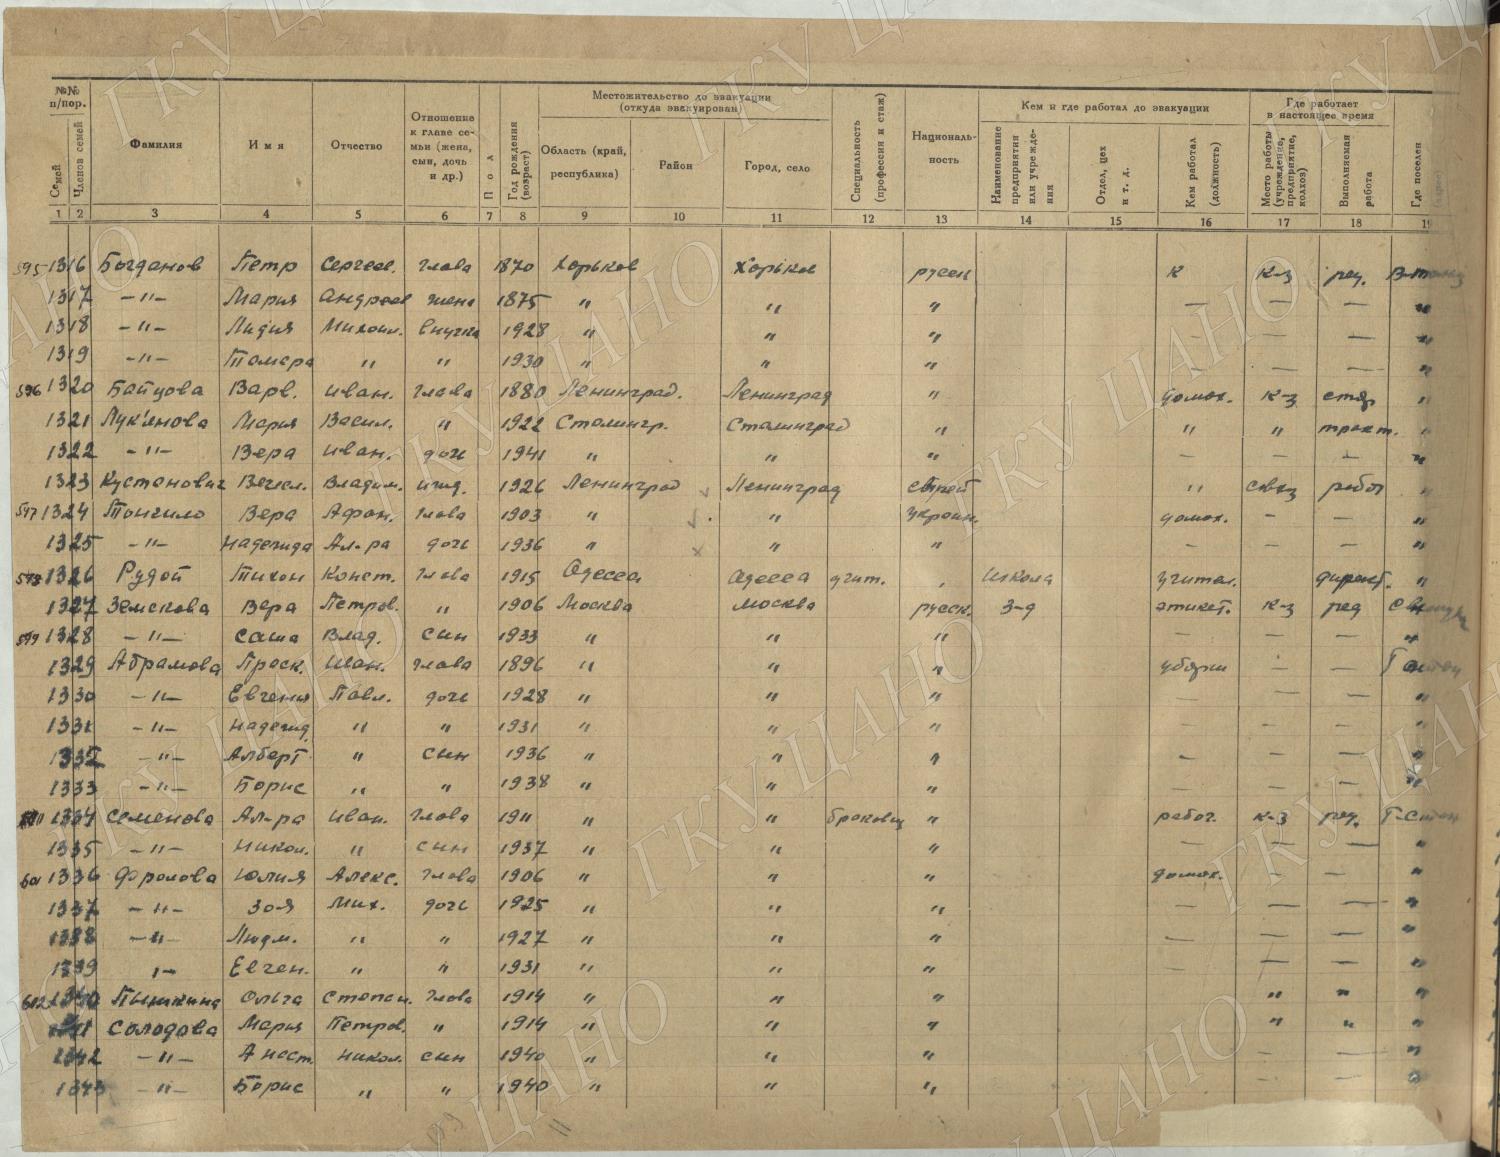 №№ п/пор. Фамилия Имя Отчество Отношение к главе семьи (жена, сын, дочь и др.) Пол Год рождения (возраст) Местожительство до эвакуации (откуда эвакуирован) Специальность (профессия и стаж) Националь-ность Кем и где работал до эвакуации Где работает в настоящее время Где поселен
Семей Членов семей Область (край, республика) Район Город, село Наименование предприятия или учрежде-ния Отдел, цех и т. д. Кем работал (должность) Место работы (учреждение, предприятие, колхоз) Выполняемая работа
1 2 3 4 5 6 7 8 9 10 11 12 13 14 15 16 17 18 19
595 1316 Богданов Петр Сергеев. глава 1870 Харьков Харьков русск к к-з ряд.
1317 -"- Мария Андреев жена 1875 " " " — — — "
1318 -"- Лидия Михаил. внучка 1928 " " " — — "
1319 -"- Тамара " " 1930 " " " — — "
596 1320 Байцова Варв. Иван. глава 1880 Ленинград. Ленинград " домох. к-з "
1321 Лук'янова Мария Васил. " 1922 Сталингр. Сталинград " " " тракт. "
1322 -"- Вера Иван. дочь 1941 " " " — — — "
1323 Кустанович Владим. 1926 Ленинград Ленинград еврей " свхз работ "
597 1324 Вера Афан. глава 1903 " " украин. домох. — — "
1325 -"- Надежда Ал-ра дочь 1936 " " " — — — "
598 1326 Рудой Тихон Конст. глава 1915 Одесса Одесса учит. " школа учител. директ. "
1327 Земскова Вера Петров. " 1906 Москва Москва русск. з-д этикет. к-з ряд
599 1328 -"- Саша Влад. сын 1933 " " " — — — "
1329 Абрамова Праск. Иван. глава 1896 " " " уборщ — —
1330 -"- Евгения Павл. дочь 1928 " " " — — — "
1331 -"- Надежд. " " 1931 " " " — — — "
1332 -"- Алберт " сын 1936 " " " — — — "
1333 -"- Борис " " 1938 " " " — — — "
600 1334 Семенова Ал-ра Иван. глава 1911 " " браковщ " работ. к-з ряд.
1335 -"- Никол. " сын 1937 " " " — — — "
601 1336 Фролова Юлия Алекс. глава 1906 " " " домох. — — "
1337 -"- Зоя Мих. дочь 1925 " " " — — — "
1338 -"- Людм. " " 1927 " " " — — — "
1339 "- Евген. " " 1931 " " " — — — "
602 1340 Пышкина Ольга Степан. глава 1914 " " " " " "
Солодова Мария Петров. " 1914 " " " " " "
1342 -"- Анаст. Никол. сын 1940 " " " — — "
1343 -"- Борис " " 1940 " " " — — "
ГКУ ЦАНО